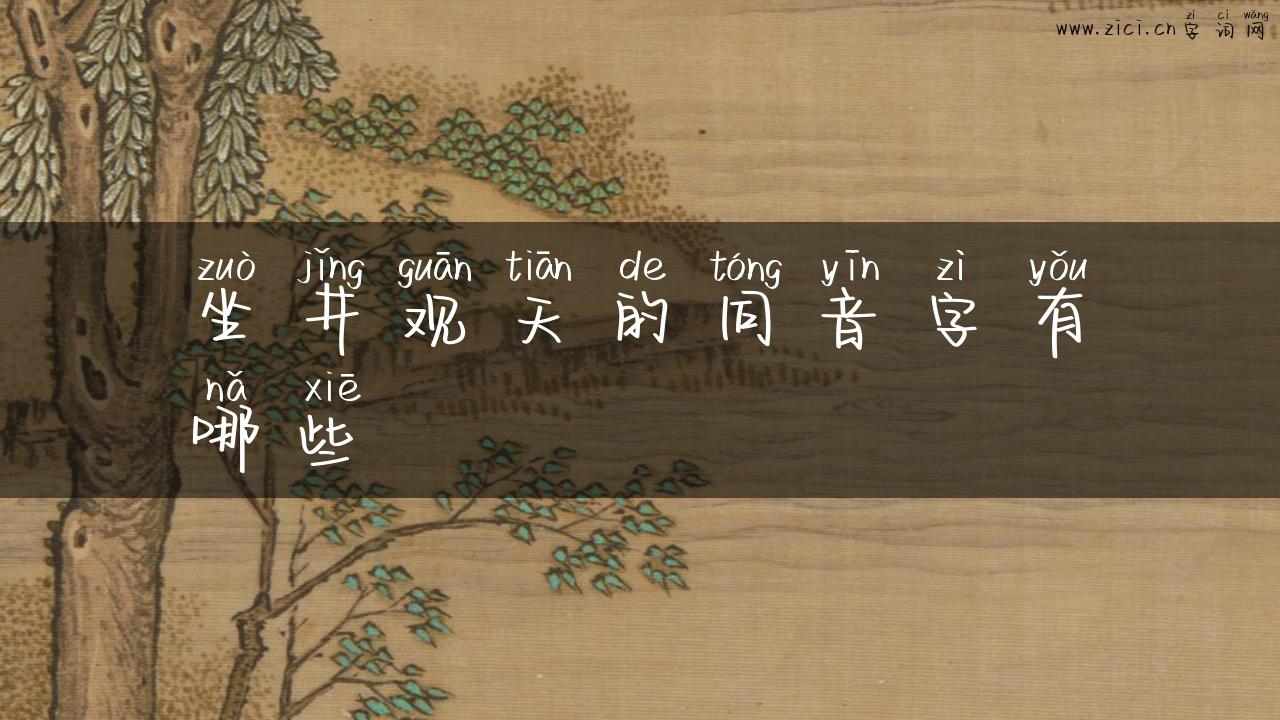 zǐ cí wǎng
www.zici.cn 字 词 网
zuò jǐng guān tiān de tóng yīn zì yǒu
坐 井 观 天 的 同 音 字 有
nǎ xiē
哪 些